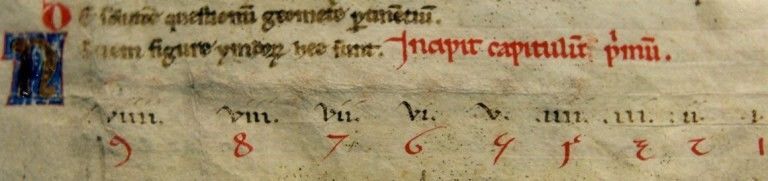 De solutiōe questionū geometrie ꝑtinētiū.
Nouem figure yndoꝝ hec sunt. Incipit capitulū p̄mū.
viiii. viii. vii. vi. v. .iiii. .iii. .ii. .i.
9 8 7 6 5 4 3 2 1